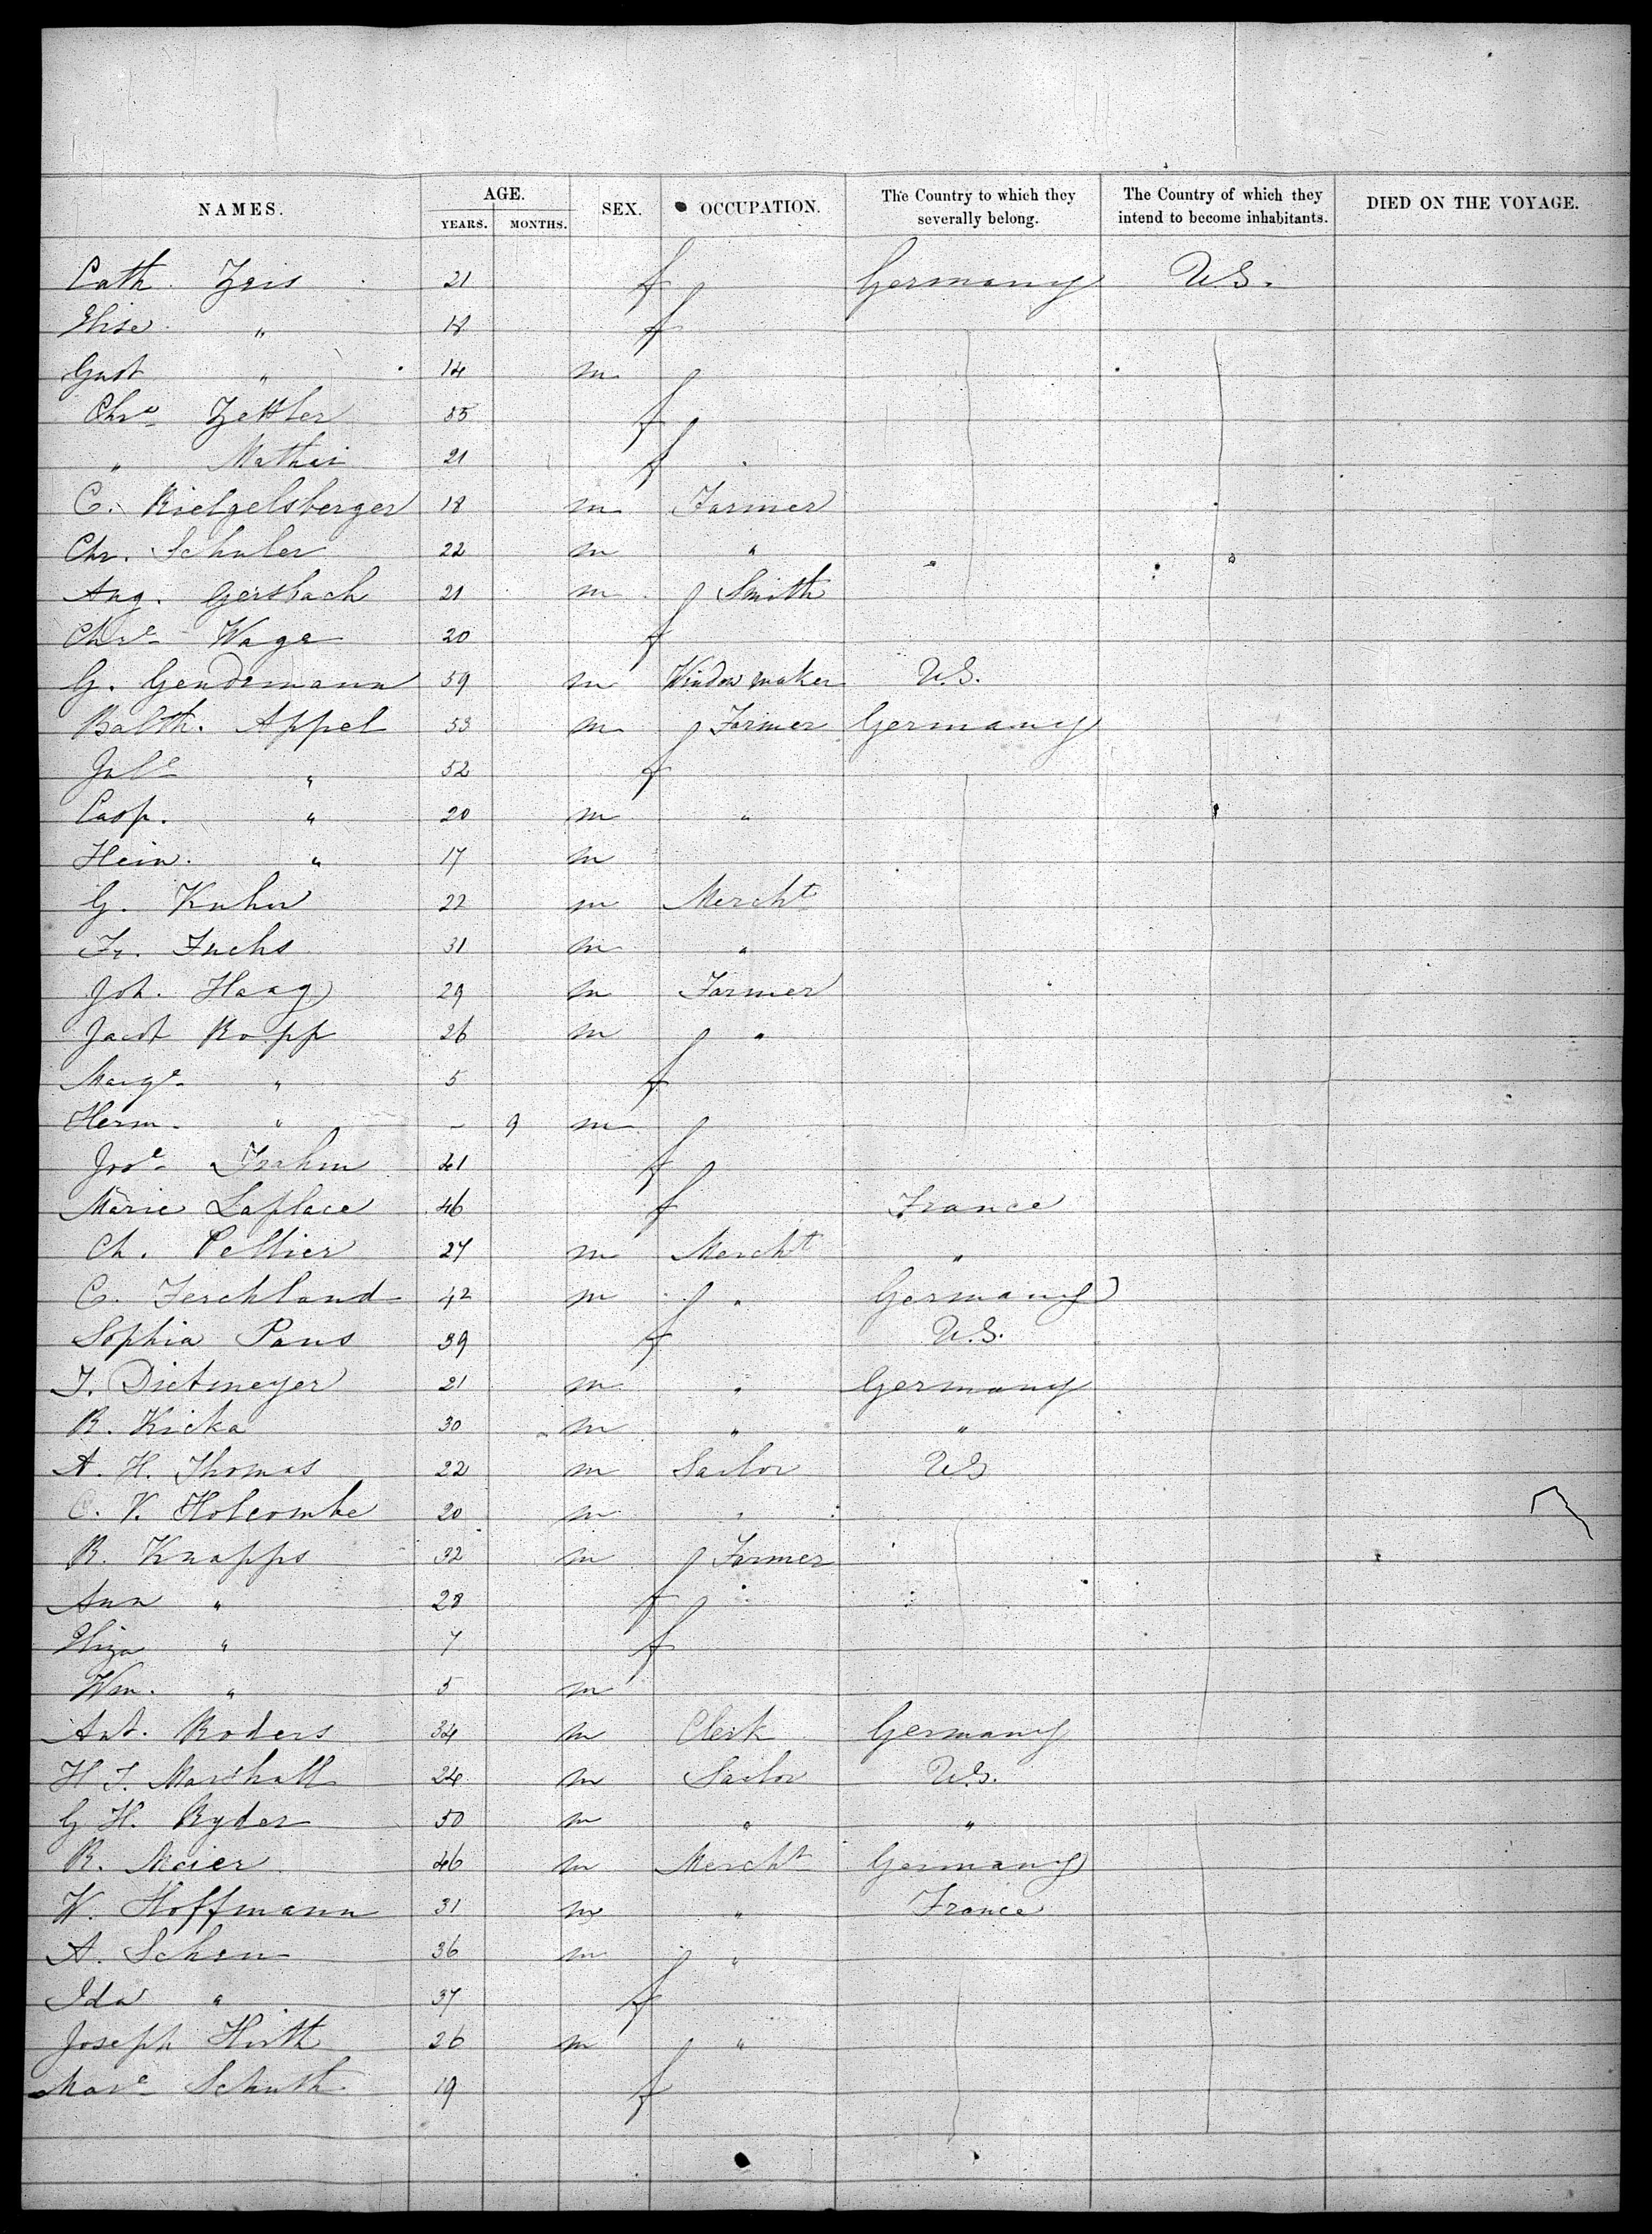 NAMES. AGE. SEX. OCCUPATION. The Country to which they severally belong. The Country of which they intend to become inhabitants. DIED ON THE VOYAGE.
YEARS. MONTHS.
Cath. Zeis 21 f Germany U.S.
Elise " 18 f
Gust " 14 m
Chre Zettler 55 f
" Mathei 21 f
C. Rielgelsberger 18 m Farmer
Chr. Schuler 22 m "
Aug. Gersbach 21 m Smith
Chre Wage 20 f
G. Gendemann 59 m Window maker U.S.
Balth. Appel 53 m Farmer Germany
Jule " 52 f
Casp. " 20 m "
Hein. " 17 m
G. Kuhn 22 m Mercht
Fr. Fuchs 31 m "
Joh. Haag 29 m Farmer
Jacob Ropp 26 m "
Marge " 5 f
Herm. " - 9 m
Jose Frahm 41 f
Marie Laplace 46 f France
Ch. Peltier 27 m Mercht "
C. Ferchland 42 m " Germany
Sophia Paus 39 f U.S.
F. Dietmeyer 21 m " Germany
R. Kicka 30 m " "
A. H. Thomas 22 m Sailor U.S
C. V. Holcombe 20 m "
R. Knapps 32 m Farmer
Ann " 28 f
Eliza " 7 f
Wm. " 5 m
Ant. Roders 34 m Clerk Germany
H F. Marshall 24 m Sailor U.S.
G H. Ryder 50 m " "
R. Meier 46 m Mercht Germany
W. Hoffmann 31 m " France
A. Scheu 36 m "
Ida " 37 f
Joseph Hirth 26 m "
Mare Schuth 19 f